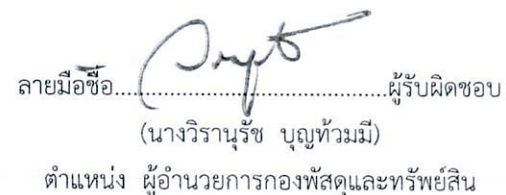 ลายมือชื่อ..................................ผู้รับผิดชอบ
(นางวิรานุรัช บุญท้วมมี)
ตำแหน่ง ผู้อำนวยการกองพัสดุและทรัพย์สิน